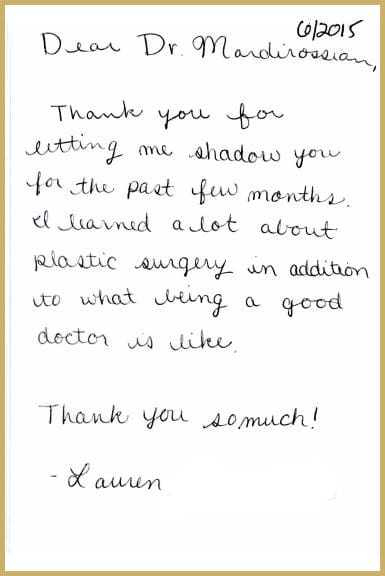 6/2015
Dear Dr. Mardirossian,
Thank you for
letting me shadow you
for the past few months.
I learned a lot about
plastic surgery in addition
to what being a good
doctor is like.
Thank you so much!
- Lauren